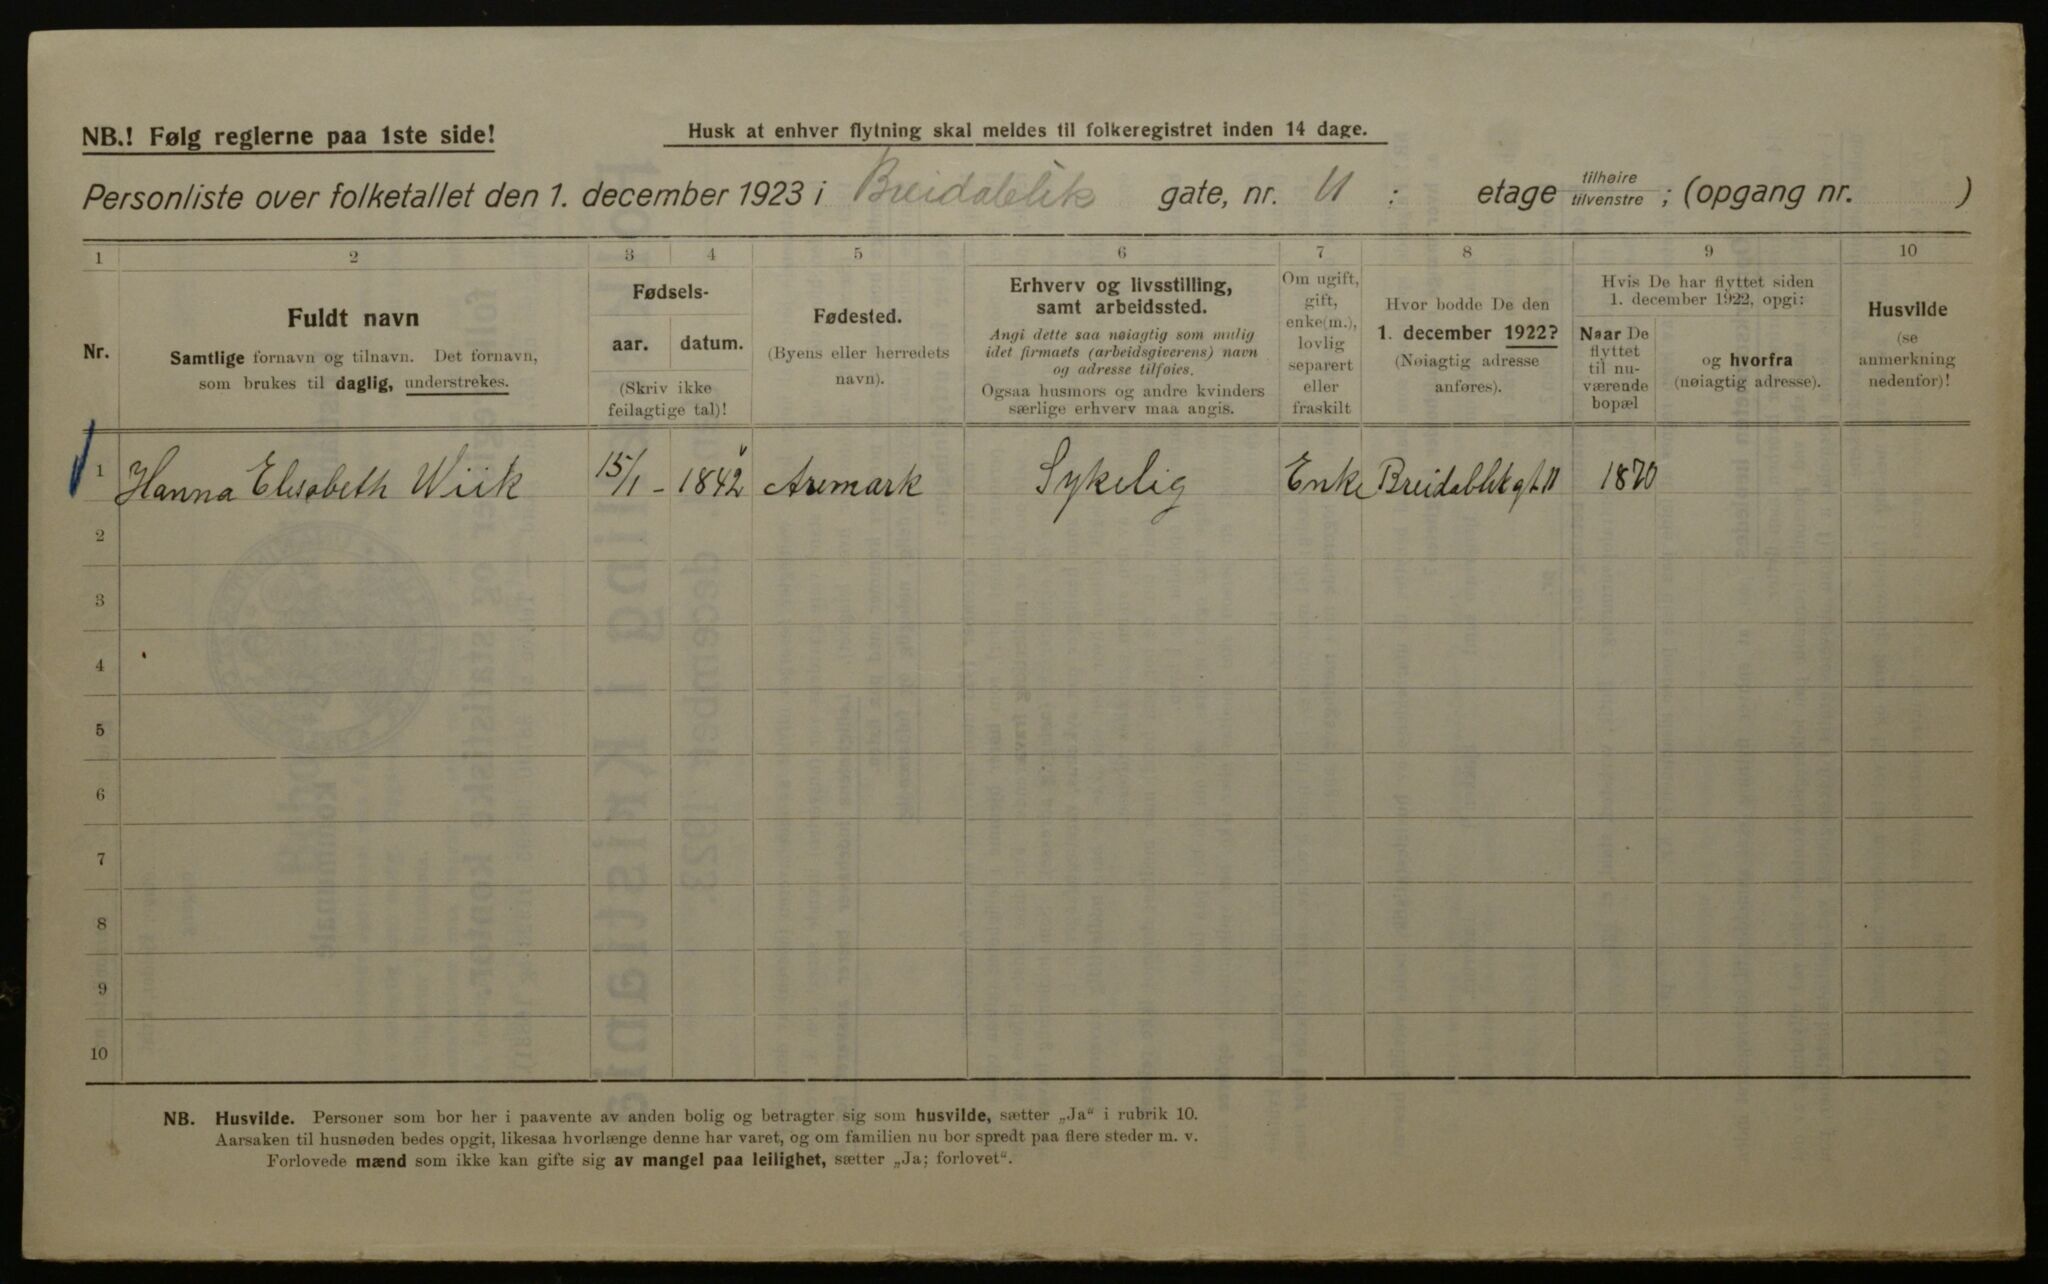 NB.! Følg reglerne paa 1ste side!
Husk at enhver flytning skal meldes til folkeregistret inden 14 dage.
Personliste over folketallet den 1. december 1923 i Breidablik gate, nr. 11 : etage tilhøire tilvenstre ; (opgang nr. )
1 2 3 4 5 6 7 8 9 10
Nr.
Fuldt navn
Samtlige fornavn og tilnavn. Det fornavn,
som brukes til daglig, understrekes.
Fødsels-
aar. datum.
(Skriv ikke
feilagtige tal)!
Fødested.
(Byens eller herredets
navn).
Erhverv og livsstilling,
samt arbeidssted.
Angi dette saa nøiagtig som mulig
idet firmaets (arbeidsgiverens) navn
og adresse tilføies.
Ogsaa husmors og andre kvinders
særlige erhverv maa angis.
Om ugift,
gift,
enke(m.),
lovlig
separert
eller
fraskilt
Hvor bodde De den
1. december 1922?
(Nøiagtig adresse
anføres).
Hvis De har flyttet siden
1. december 1922, opgi:
Naar De
flyttet
til nu-
værende
bopæl
og hvorfra
(nøiagtig adresse).
Husvilde
(se
anmerkning
nedenfor)!
1 Hanna Elisabeth Wiik 15/1 - 1842 Aremark Sykelig Enke Breidablikgt 11 1870
2
3
4
5
6
7
8
9
10
NB. Husvilde. Personer som bor her i paavente av anden bolig og betragter sig som husvilde, sætter „Ja“ i rubrik 10.
Aarsaken til husnøden bedes opgit, likesaa hvorlænge denne har varet, og om familien nu bor spredt paa flere steder m. v.
Forlovede mænd som ikke kan gifte sig av mangel paa leilighet, sætter „Ja; forlovet“.